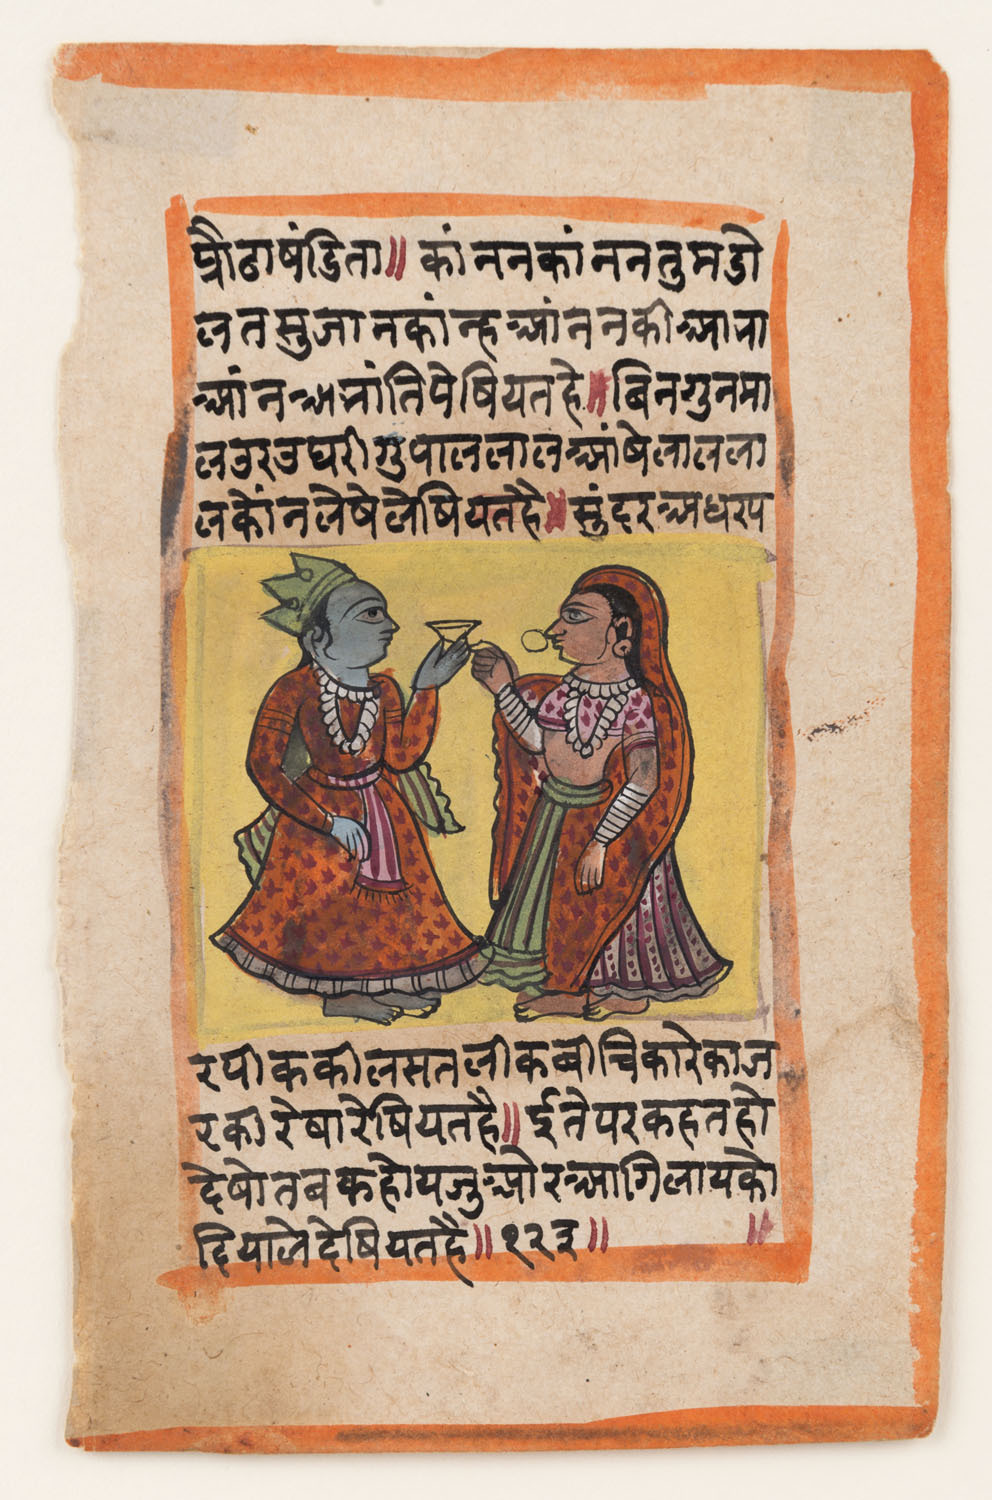 प्रौढाषंडिता॥ कांननकांननतुमडो
लतसुजानकांन्हआंननकीआभा
आंनभांतिपेषियतहे॥बिनगुनमा
लउरउघरीगुपाललालआंषेलालला
लकोंनलेषेलेषियतहै॥सुंदरअधरप
रपीककीलसतलीकबीचिकारेकाज
रकीरेषारेषियतहै॥ईतेपरकहतहो
देषोतबकहोयजुओरआगिलायको
दियालेदेषियतहै॥१२३॥ ॥